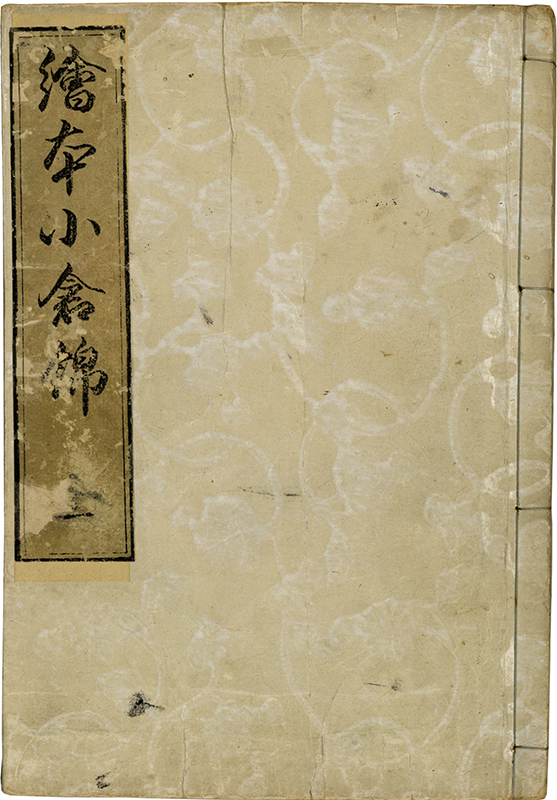 繪本小倉錦